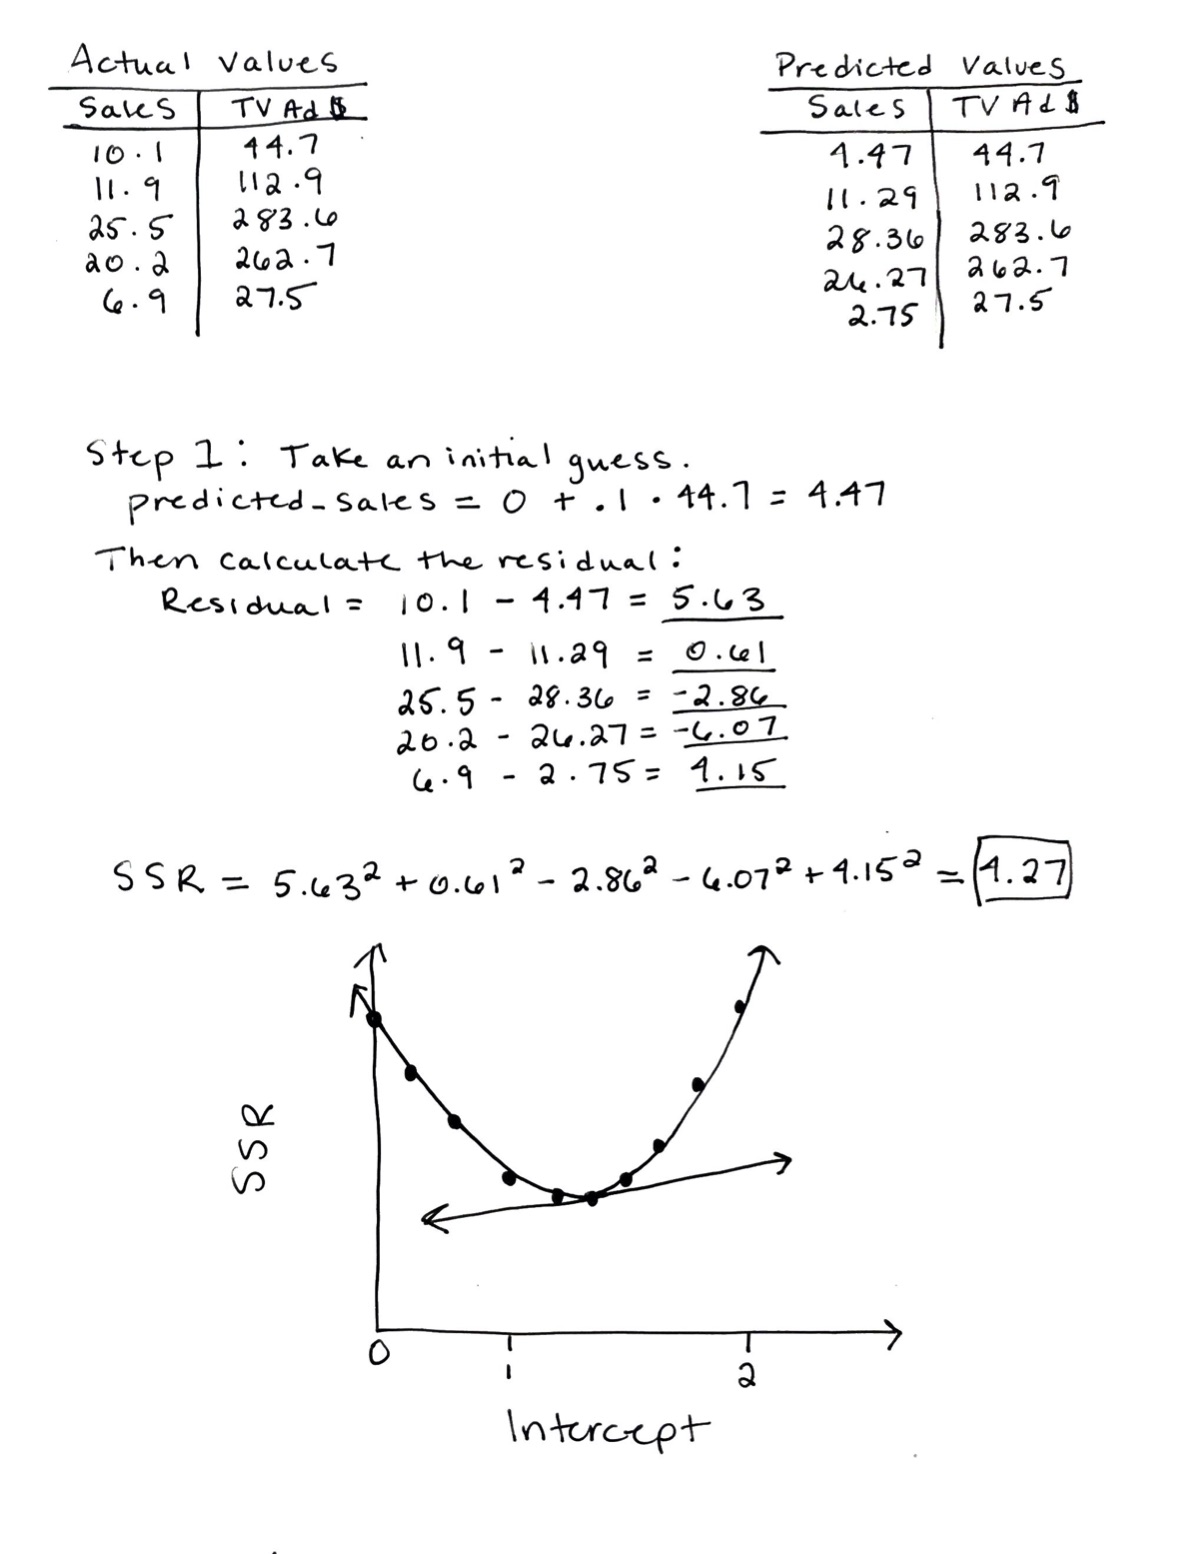 Actual Values
Sales TV Ad $
10.1 44.7
11.9 112.9
25.5 283.6
20.2 262.7
6.9 27.5
Predicted Values
Sales TV Ad $
4.47 44.7
11.29 112.9
28.36 283.6
26.27 262.7
2.75 27.5
Step 1: Take an initial guess.
predicted_sales = 0 + .1 · 44.7 = 4.47
Then calculate the residual:
Residual = 10.1 - 4.47 = 5.63
11.9 - 11.29 = 0.61
25.5 - 28.36 = -2.86
20.2 - 26.27 = -6.07
6.9 - 2.75 = 4.15
SSR = 5.63² + 0.61² - 2.86² - 6.07² + 4.15² = 4.27
SSR
0 1 2
Intercept